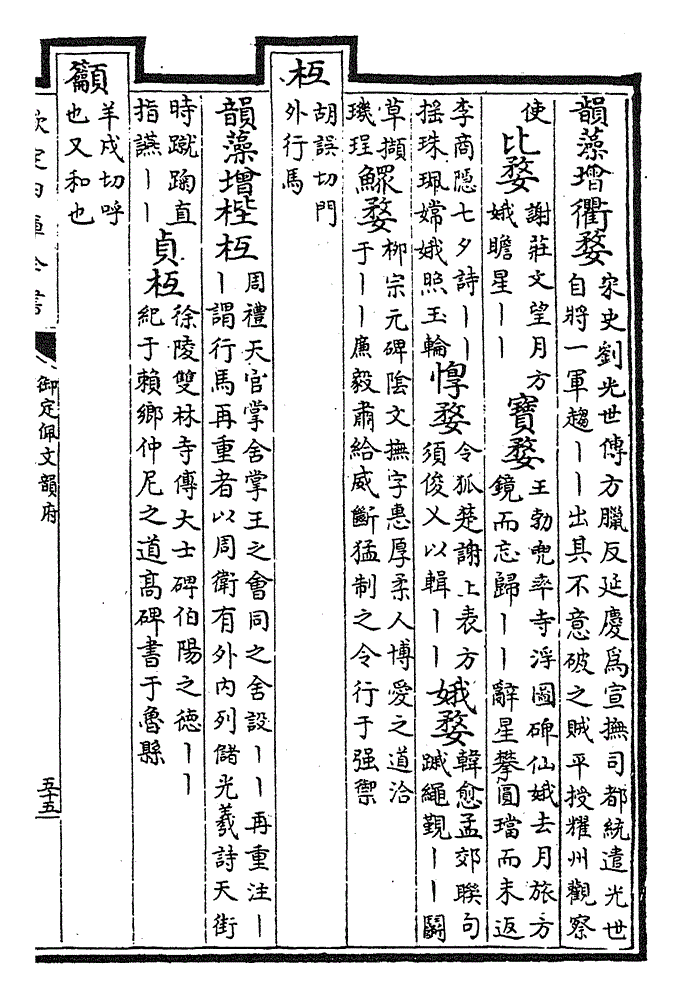 韻藻增衢婺宋史劉光世傳方臘反延慶爲宣撫司都統遣光世
自將一軍趨丨丨出其不意破之賊平授耀州觀察
使
比婺謝莊文望月方
娥瞻星丨丨
寶婺王勃兜率寺浮圖碑仙娥去月旅方
鏡而忘歸丨丨辭星攀圓璫而未返
李商隱七夕詩丨丨
搖珠珮嫦娥照玉輪
惸婺令狐楚謝上表方
須俊乂以輯丨丨
娥婺韓愈孟郊聯句
踧繩覲丨丨鬬
草擷
璣珵
鰥婺柳宗元碑陰文撫字惠厚柔人博愛之道洽
于丨丨廉毅肅給威斷猛制之令行于强禦
枑
胡誤切門
外行馬
韻藻增梐枑周禮天官掌舍掌王之會同之舍設丨丨再重注丨
丨謂行馬再重者以周衛有外内列儲光羲詩天街
時蹴踘直
指讌丨丨
貞枑徐陵雙林寺傳大士碑伯陽之德丨丨
紀于賴鄉仲尼之道高碑書于魯縣
籲
羊戍切呼
也又和也
欽定四庫全書
御定佩文韻府
五十五